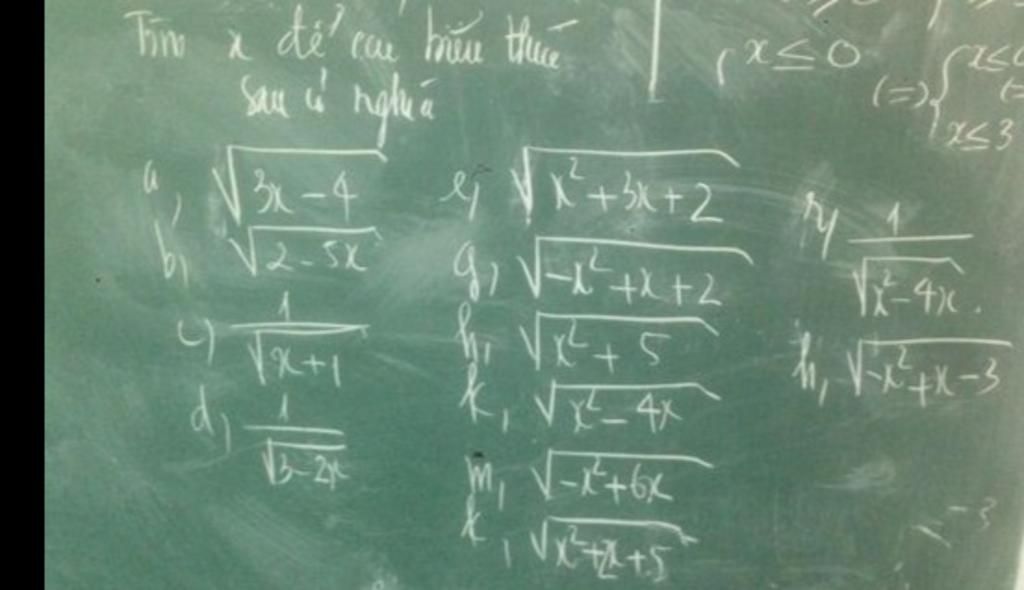 Tìm x để các biểu thức
sau có nghĩa
a, √(3x - 4)
b, √(2 - 5x)
c, 1/√(x + 1)
d, 1/√(3 - 2x)
e, √(x² + 3x + 2)
g, √(-x² + x + 2)
h, √(x² + 5)
k, √(x² - 4x)
m, √(-x² + 6x)
k, √(x² + 2x + 5)
1/√(x² - 4x).
h, √(-x² + x - 3)
{ x ≤ 0
(=) { x ≤ 0
x ≤ 3
-3